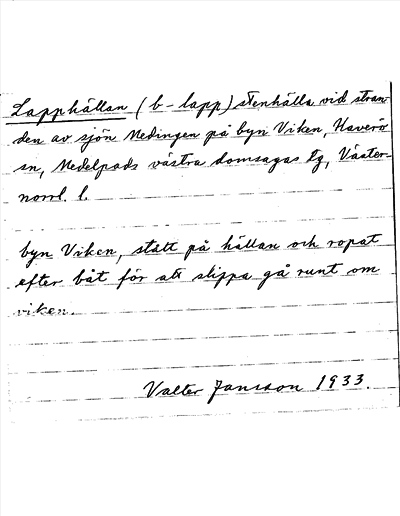 Lapphällan (b-lapp) stenhälla vid stran
den av sjön Medingen på byn Viken, Haverö
sn, Medelpads västra domsagas tg, Väster-
norrl. l.
byn Viken, stått på hällan och ropat
efter båt för att slippa gå runt om
viken.
Valter Jansson 1933.